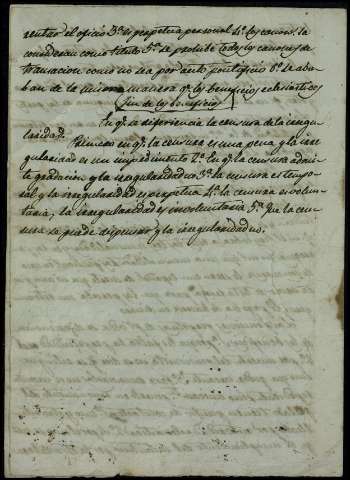 rentar el oficio 3º es perpetua personal 4º los canones la
consideran como titulo 5º se prohibe todos los canones de
translacion como no sea por dento pontificio 6º se aca-
ban de la misma manera q.e los beneficios eclesiasticos
Fin de los beneficios
En q.e se diferencia la censura de la irregu-
laridad.
Primero en q.e la censura es una pena y la irre-
gularidad es un impedimento 2º En q.e la censura admi-
te gradacion y la irregularidad no. 3º la censura es tempo-
ral y la irregularidad es perpetua 4º la censura es volun-
taria, la irregularidad es involuntaria 5ª que la cen-
sura se puede dispensar y la irregularidad no.